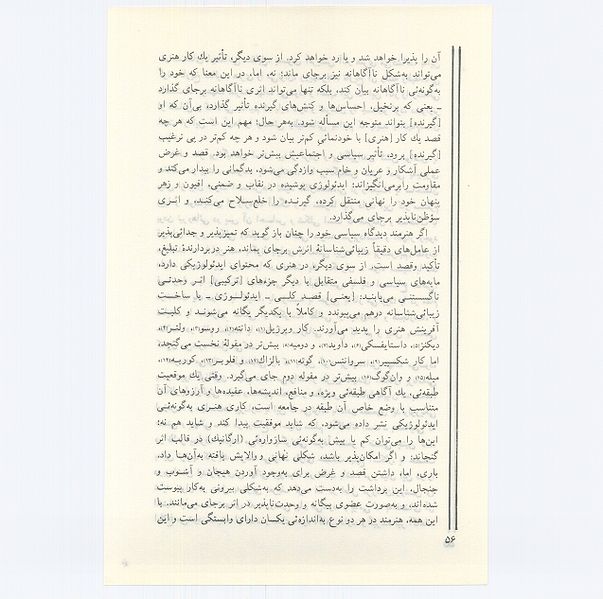 آن را پذیرا خواهد شد و یا رد خواهد کرد. از سوی دیگر، تأثیر یك کار هنری
می‌تواند به‌شکل ناآگاهانه نیز برجای ماند؛ نه، اما، در این معنا که خود را
به‌گونه‌ئی ناآگاهانه بیان کند، بلکه تنها می‌تواند اثری ناآگاهانه برجای گذارد
ــ یعنی که برتخیل، احساس‌ها و کنش‌های گیرنده تأثیر گذارد، بی‌آن که او
[گیرنده] بتواند متوجه این مسأله شود. به‌هر حال؛ مهم این است که هر چه
قصد یك کار [هنری] با خودنمائیِ کم‌تر بیان شود و هر چه کم‌تر در پی ترغیب
[گیرنده] برود، تأثیر سیاسی و اجتماعیش بیش‌تر خواهد بود. قصد و غرض
عملی آشکار و عریان و خام سبب وازدگی می‌شود، بدگمانی را بیدار می‌کند و
مقاومت رابرمی‌انگیزاند؛ ایدئولوژی پوشیده در نقاب و ضمنی، افیون و زهر
پنهان خود را نهانی منتقل کرده، گیرنـده را خلع‌سلاح می‌کنـد، و اثـری
سوءظن‌ناپذیر برجای می‌گذارد.
اگر هنرمند دیدگاه سیاسی خود را چنان باز گوید که تمیزپذیر و جدائی‌پذیر
از عامل‌های دقیقاً زیبائی‌شناسانهٔ اثرش برجای بماند، هنر دربردارندهٔ تبلیغ،
تأکید وقصد است. از سوی دیگر، در هنری که محتوای ایدئولوژیکی دارد،
مایه‌های سیاسی و فلسفی متقابل با دیگر جزءهای [ترکیبی] اثر وحدتـی
ناگسستنـی می‌یابنـد: [یعنـی] قصـد کلـی ــ ایدئولـوژی ــ با ساخـت
زیبائی‌شناسانه درهم می‌پیوندد و کاملاً با یکدیگر یگانه می‌شونـد و کلیـت
آفرینش هنری را پدید می‌آورند. کار ویرژیل(۱)، دانته(۱)، روسو(۳)، ولتر(۴)،
دیکنز(۵)، داستایفسکی(۶)، داوید(۷)، و دومیه(۸) بیش‌تر در مقولهٔ نخست می‌گنجد،
اما کار شکسپیر(۹)، سروانتس(۱۰)، گوته(۱۱)، بالزاک(۱۲) و فلوبـر(۱۳)، کوربـه(۱۴)،
میله(۱۵) و وان‌گوگ(۱۶) بیش‌تر در مقوله دوم جای می‌گیرد. وقتی یك موقعیت
طبقه‌ئی، یك آگاهی طبقه‌ئی ویژه، و منافع، اندیشه‌ها، عقیده‌ها و آرزوهای آن
متناسب با وضع خاص آن طبقه در جامعه است، کاری هنـری به‌گونه‌ئـی
ایدئولوژیکی نشر داده می‌شود، که شاید موفقیت پیدا کند و شاید هم نه؛
این‌ها را می‌توان کم یا بیش به‌گونه‌ئی سازواره‌ئی (ارگانیك) در قالب اثر
گنجاند؛ و اگر امکان‌پذیر باشد، شکلی نهانی و والایش یافته به‌آن‌هـا داد.
باری، اما، داشتن قصد و غرض برای به‌وجود آوردن هیجان و آشـوب و
جنجال، این برداشت را به‌دست می‌دهد که به‌شکلی بیرونی به‌کار پیوست
شده‌اند، و به‌صورت عضوی بیگانه و وحدت‌ناپذیر در اثر برجای می‌مانند. با
این همه، هنرمند در هر دو نوع به‌اندازه‌ئی یکسان دارای وابستگی است و این
۵۶